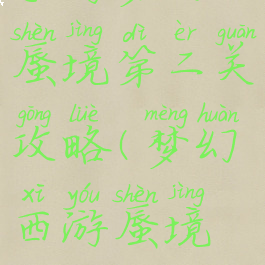 shèn jìng dì èr guān
蜃境第二关
gōng lüè mèng huàn
攻略(梦幻
xī yóu shèn jìng
西游蜃境